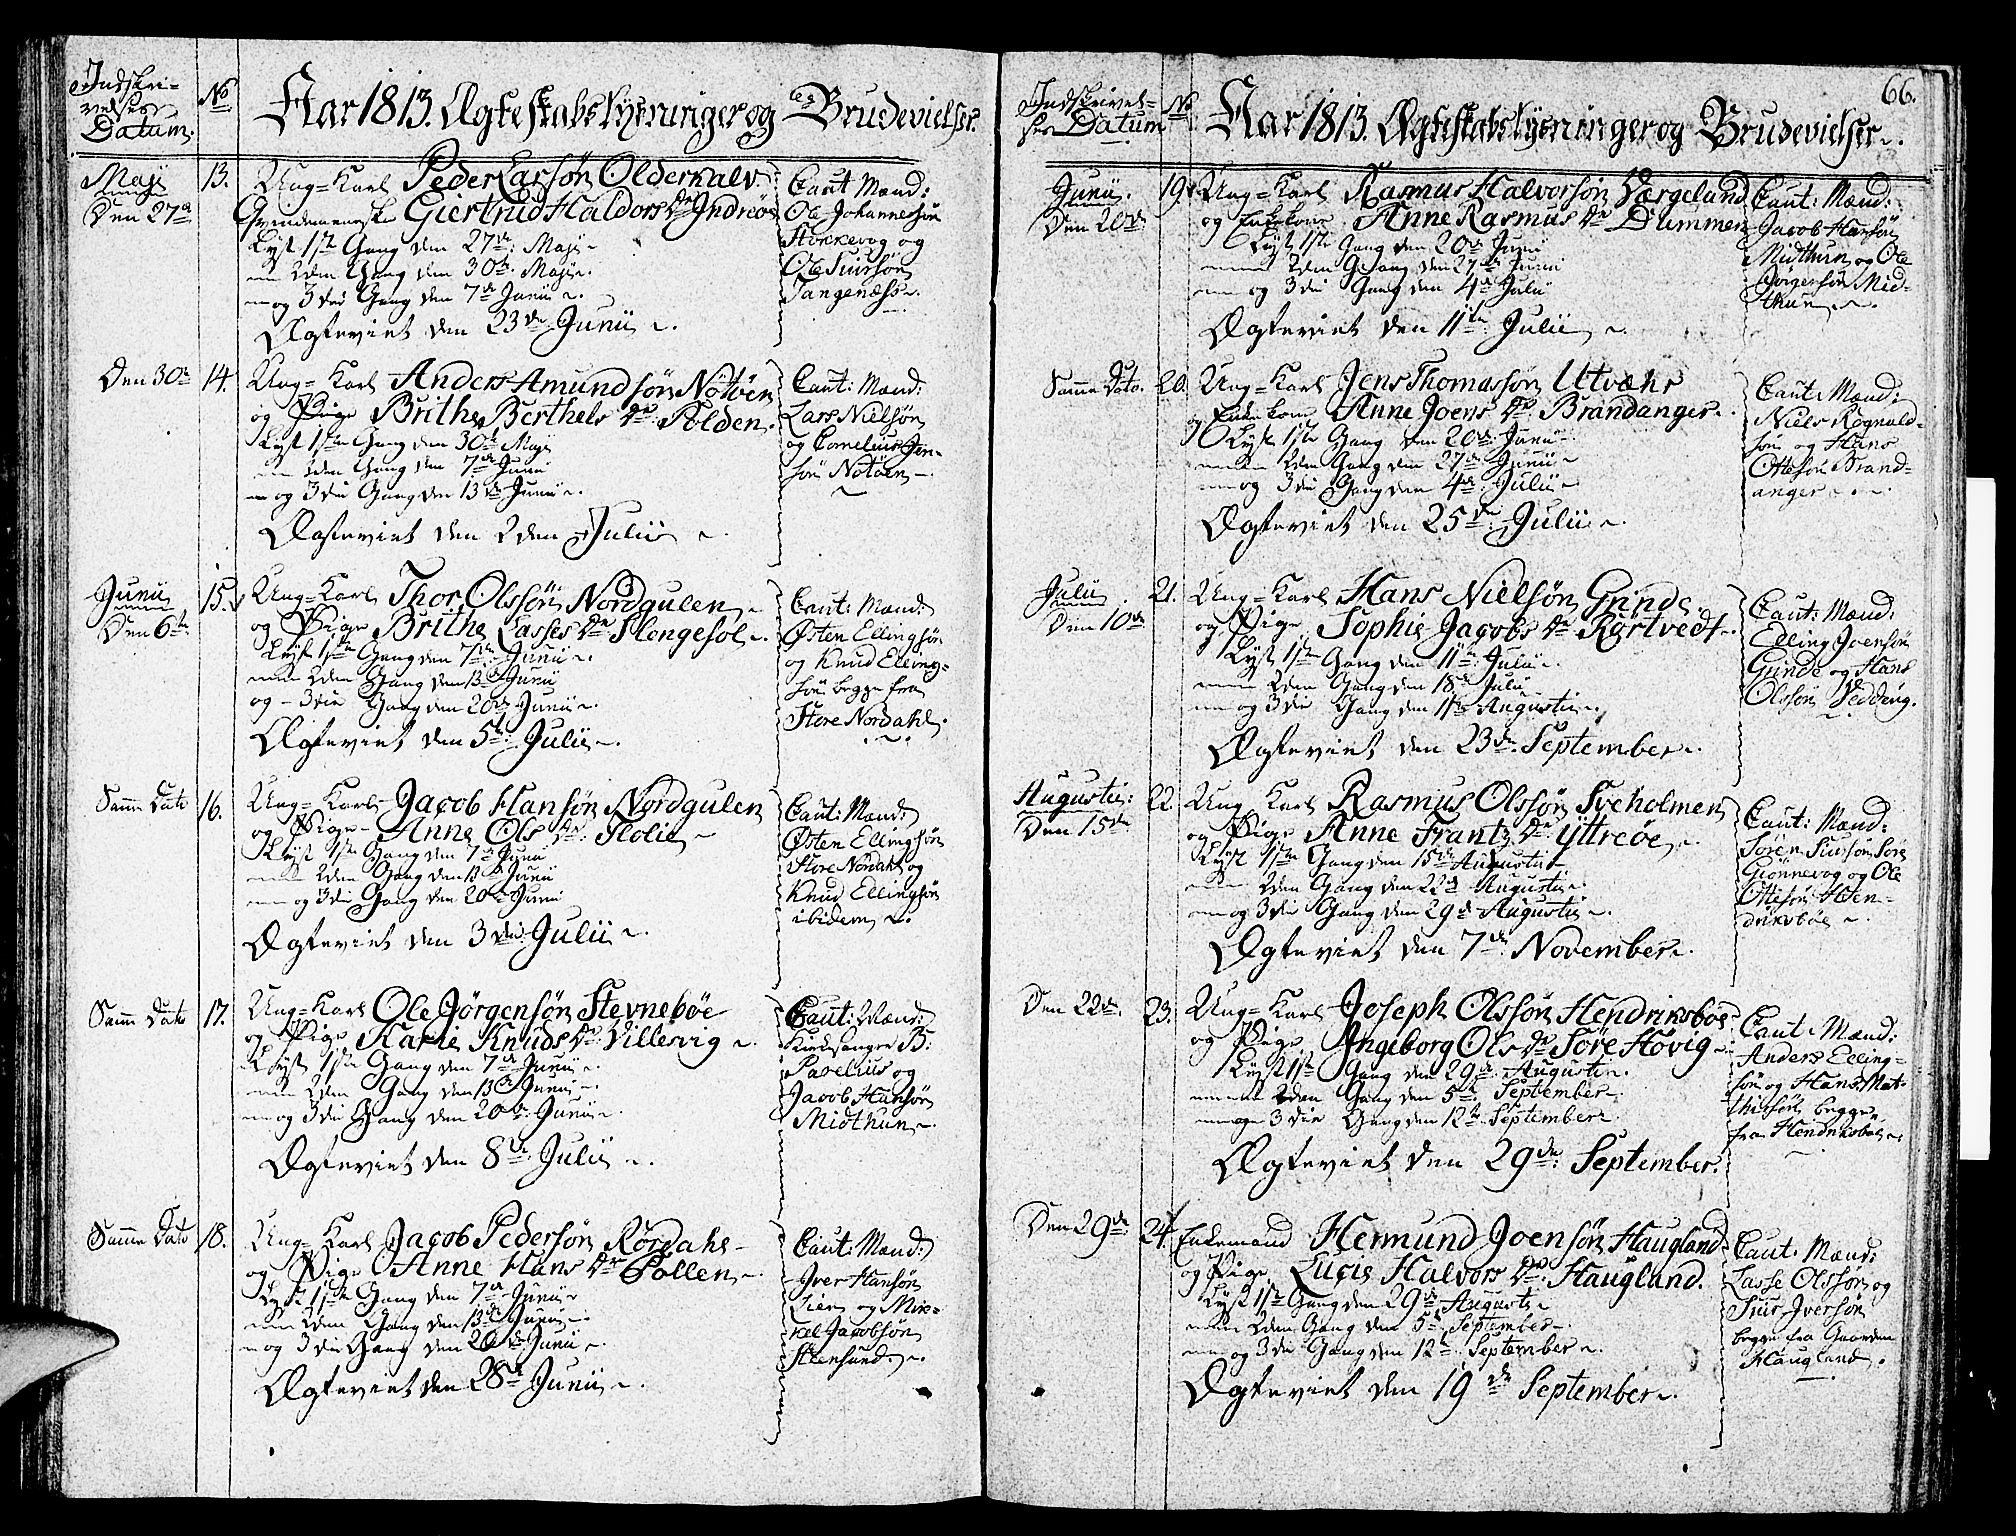 Indskri-
velses
Datum.
No
Aar 1813. Ægteskabs Lysninger og Brudevielser.
Maji
Den 27de
13.
Ung-Karl Peder Larsøn Olderkalv.
Qvindemenneske Giertrud Haldors Dr Indreøe
Lyst 1ste Gang den 27de Maji
2den Gang den 30te Maji
og 3die Gang den 7de Junii
Ægteviet den 23de Junii
Caut: Mænd:
Ole Johannessøn
Stokkevog og
Ole Siursøn
Tangenæss
Den 30te
14.
Ung-Karl Anders Amundsøn Notøen
og Pige Brithe Berthels Dr Polden.
Lyst 1ste Gang den 30te Maji
2den Gang den 7de Junii
og 3die Gang den 13de Junii
Ægteviet den 2den Julii
Caut: Mænd:
Lars Nielsøn
og Cornelius Jen-
søn Notøen
Junii
Den 6te
15.
Ung-Karl Thor Olssøn Nordgulen
og Pige Brithe Lasses Dr Slengesol
Lyst 1ste Gang den 7de Junii
2den Gang den 13de Junii
og 3die Gang den 20de Junii
Ægteviet den 5te Julii
Caut: Mænd:
Østen Ellingsøn
og Knud Elling-
søn begge fra
Store Nordahl.
Samme Dato
16.
Ung-Karl Jacob Hansøn Nordgulen
og Pige Anne Ols Dr Flolie
Lyst 1ste Gang den 7de Junii
2den Gang den 13de Junii
og 3die Gang den 20de Junii
Ægteviet den 3die Julii
Caut: Mænd:
Østen Ellingsøn
Store Nordahl og
Knud Ellingsøn
ibidem
Samme Dato
17.
Ung-Karl Ole Jørgensøn Stevnebøe
og Pige Karie Knuds Dr Villesvig
Lyst 1ste Gang den 7de Junii
2den Gang den 13de Junii
og 3die Gang den 20de Junii
Ægteviet den 8de Julii
Caut: Mænd:
Kirkesanger B:
Parelius og
Jacob Hansøn
Midthun
Samme Dato
18.
Ung-Karl Jacob Pedersøn Rørdahl
og Pige Anne Hans Dr Pollen
Lyst 1ste Gang den 7de Junii
2den Gang den 13de Junii
og 3die Gang den 20de Junii
Ægteviet den 28de Junii
Caut: Mænd:
Iver Hansøn
Lien og Mik-
kel Jacobsøn
Steensund.
66.
Indskrivel-
ses Datum
No
Aar 1813. Ægteskabs Lysninger og Brudevielser.
Junii.
Den 20de
19.
Ung-Karl Rasmus Halvorsøn Værgeland
og Enkekone Anne Rasmus Dr Dummen
Lyst 1ste Gang den 20de Junii
2den Gang den 27de Junii
og 3die Gang den 4de Julii
Ægteviet den 11te Julii
Caut: Mænd:
Jacob Hansøn
Midthun og Ole
Jørgensøn Mid-
thun
Samme Dato.
20.
Ung-Karl Jens Thomassøn Utvæhr
og Enkekone Anne Joens Dr Brandanger
Lyst 1ste Gang den 20de Junii
2den Gang den 27de Junii
og 3die Gang den 4de Julii
Ægteviet den 25de Julii
Caut: Mænd:
Niels Rognald-
søn og Hans
Ottesøn Brand-
anger
Julii
Den 10de
21.
Ung-Karl Hans Nielsøn Grinde
og Pige Sophie Jacobs Dr Rørtvedt
Lyst 1ste Gang den 11te Julii
2den Gang den 18de Julii
og 3die Gang den 1ste Augustii
Ægteviet den 23de September
Caut: Mænd:
Elling Joensøn
Grinde og Hans
Olssøn Veddeng.
Augustii:
Den 15de
22.
Ung Karl Rasmus Olssøn Sveholmen
og Pige Anne Frantz Dr Yttreøe
Lyst 1ste Gang den 15de Augustii
2den Gang den 22de Augustii
og 3die Gang den 29de Augustii
Ægteviet den 7de November
Caut: Mænd:
Søren Siursøn Søre
Giønnevog og Ole
Ottesøn Hen-
driksbøe
Den 22de.
23.
Ung-Karl Joseph Olssøn Hendriksbøe
og Pige Ingeborg Ols Dr Søre Høvig
Lyst 1ste Gang den 29de Augustii
2den Gang den 5te September
og 3die Gang den 12te September
Ægteviet den 29de September.
Caut: Mænd:
Anders Elling-
søn og Hans Mat-
thissøn begge
fra Hendriksbøe
Den 29de
24.
Enkemand Hermund Joensøn Haugland
og Pige Lucie Halvors Dr Haugland.
Lyst 1ste Gang den 29de Augustii
2den Gang den 5te September
og 3die Gang den 12te September
Ægteviet den 19de September
Caut: Mænd:
Lasse Olssøn og
Siur Iversøn
begge fra Gaarden
Haugland.